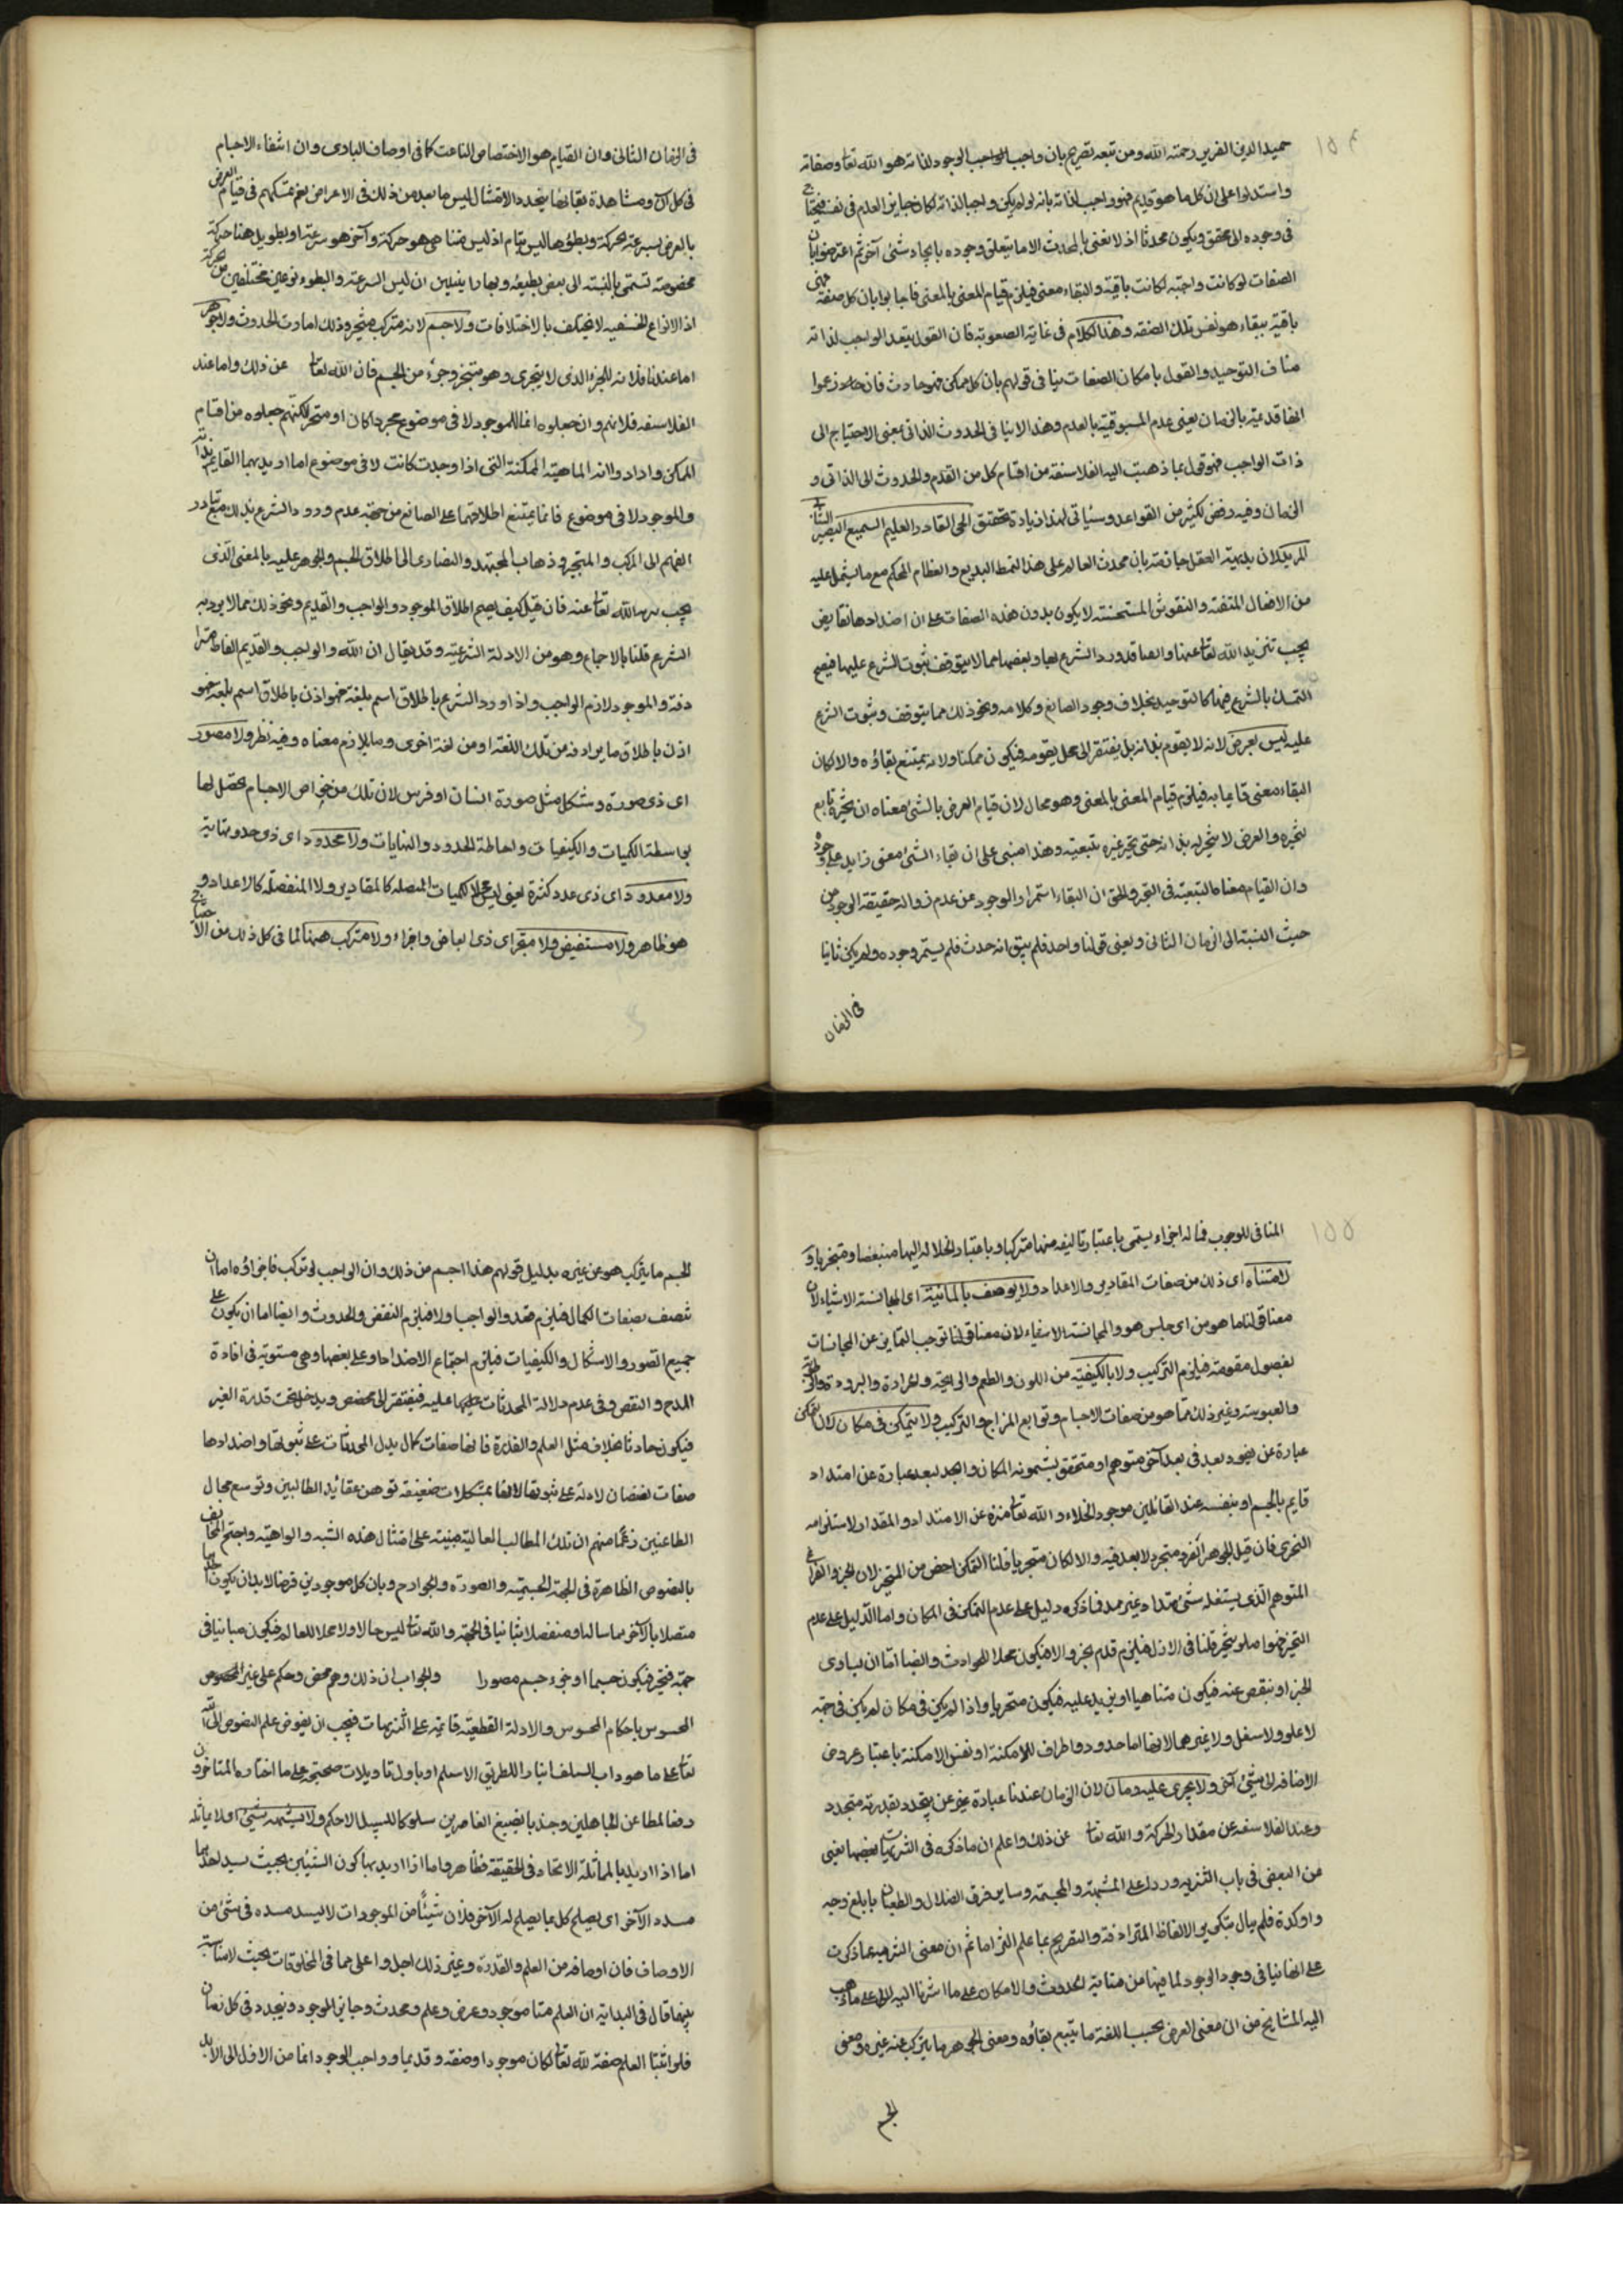 ١٥٤
حميد الدين الضرير رحمته الله ومن تبعه تصريح بان واجب الوجود لذاته هو الله تعا وصفاته
واستدلوا على ان كل ما هو قديم فهو واجب لذاته بانه لو لم يكن واجبا لذاته لكان جايز العدم في نفسه فيحتاج
في وجوده الى محقق ويكون محدثا اذ لا نعنى بالمحدث الا ما يتعلق وجوده بايجاد شئ آخر ثم اعترضوا بان
الصفات لو كانت واجبة لكانت باقية والبقاء معنى فيلزم قيام المعنى بالمعنى فاجابوا بان كل صفة فهى
باقية ببقاء هو نفس تلك الصفة وهذا الكلام في غاية الصعوبة فان القول بتعدد الواجب لذاته
مناف التوحيد والقول بامكان الصفات ينافى قولهم بان كل ممكن فهو حادث فان زعموا
انها قديمة بالزمان بمعنى عدم المسبوقية بالعدم وهذا لا ينافى الحدوث الذاتى بمعنى الاحتياج الى
ذات الواجب فهو قول بما ذهبت اليه الفلاسفة من اقسام كل من القدم والحدوث الى الذاتى و
الزمان وفيه رفض لكثير من القواعد وسياتى لهذا زيادة تحقيق الحى القادر العليم السميع البصير الشائى
المريد لان بديهة العقل جازمة بان محدث العالم على هذا النمط البديع والنظام المحكم مع ما يشمل عليه
من الافعال المتقنة والنقوش المستحسنة لا يكون بدون هذه الصفات على ان اضدادها نقايض
يجب تنزيه الله تعا عنها وايضا قد ورد الشرع بها وبعضها مما لا يتوقف ثبوت الشرع عليها فيصح
التمسك بالشرع فيها كالتوحيد بخلاف وجود الصانع وكلامه ونحو ذلك مما يتوقف وثبوت الشرع
عليه ليس بعرض لانه لا يقوم بذاته بل يفتقر الى محل يقومه فيكون ممكنا ولانه يمتنع بقاؤه والا لكان
البقاء معنى قايما به فيلزم قيام المعنى بالمعنى وهو محال لان قيام العرض بالشئ معناه ان تحيزه تابع
لتحيزه والعرض لا تحيز له بذاته حتى يتحيز غيره بتبعيته وهذا مبنى على ان بقاء الشئ معنى زايد على وجوده
وان القيام معناه التبعية في التحيز والحق ان البقاء استمرار الوجود عن عدم زواله حقيقة الوجود من
حيث النسبة الى الزمان الثانى ومعنى قولنا واحد فلم يبق انه حدث فلم يستمر وجوده ولم يكن ثابتا
في الزمان
في الزمان الثانى وان القيام هو الاختصاص الناعت كما في اوصاف البارى وان انتفاء الاجسام
في كل آن ومشاهدة بقائها بتجدد الامثال ليس ما بعد من ذلك في الاعراض نعم تمسكهم في قيام العرض
بالعرض بسرعة الحركة وبطؤها ليس بتام اذ ليس هنا شئ هو حركة وآخر هو سرعة او بطؤ بل هنا حركة
مخصوصة تسمى بالنسبة الى بعض بطيئة وبهذا يتبين ان ليس السرعة والبطوء نوعين مختلفين من الحركة
اذ الانواع الحقيقية لا تختلف بالاختلافات ولا جسم لانه متركب متحيز وذلك امارت الحدوث ولا جوهر
اما عندنا فلانه للجزء الذى لا يتجزى وهو متحيز وجزء من الجسم فان الله تعا عن ذلك واما عند
الفلاسفة فلانهم وان جعلوه اسما للموجود لا في موضوع مجردا كان او متحيزا لكنهم جعلوه من اقسام
الممكن وارادوا انه الماهية الممكنة التى اذا وجدت كانت لا في موضوع اما اذا اريد بهما القايم بذاته
والموجود لا في موضوع فانما يمتنع اطلاقهما على الصانع من جهة عدم ورود الشرع بذلك مع تبادر
الفهم الى المركب والمتحيز وذهاب المجسمة والنصارى الى اطلاق الجسم والجوهر عليه بالمعنى الذى
يجب تنزيه الله تعا عنه فان قيل كيف يصح اطلاق الموجود والواجب والقديم ونحو ذلك مما لا يرد به
الشرع قلنا بالاجماع وهو من الادلة الشرعية وقد يقال ان الله والواجب والقديم الفاظ مترا
دفة والموجود لازم الواجب واذا ورد الشرع باطلاق اسم بلغة فهو اذن باطلاق اسم بلغة فهو
اذن باطلاق ما يرادفه من تلك اللغة او من لغة اخرى وما يلازم معناه وفيه نظر ولا مصور
اى ذى صورة وشكل مثل صورة انسان او فرس لان تلك من خواص الاجسام يحصل لها
بواسطة الكميات والكيفيات واحاطة الحدود والنهايات ولا محدود اى ذى حد ونهاية
ولا معدود اى ذى عدد كثرة يعنى ليس محلا للكميات المتصلة كالمقادير ولا المنفصلة كالاعداد و
هو ظاهر ولا متبعض ولا متجز اى ذى ابعاض واجزاء ولا متركب منها لما في كل ذلك من الاحتياج
١٥٥
المنافى للوجوب فما له اجزاء يسمى باعتبار تاليفه منها متركبا وباعتبار انحلاله اليها متبعضا ومتجزيا و
لا متناه اى ذلك من صفات المقادير والاعداد ولا يوصف بالمائية اى المجانسة الاشياء لان
معنا قولنا ما هو من اى جنس هو والمجانسة الاشياء لان معنا قولنا توجب التمايز عن المجانسات
بفصول مقومة فيلزم التركيب ولا بالكيفية من اللون والطعم والرايحة والحرارة والبرودة والرطوبة
واليبوسة وغير ذلك مما هو من صفات الاجسام وتوابع المزاج والتركيب ولا يتمكن في مكان لان التمكن
عبارة عن نفوذ بعد في بعد آخر متوهم او متحقق يسمونه المكان والبعد عبارة عن امتداد
قايم بالجسم او بنفسه عند القائلين بوجود الخلاء والله تعا منزه عن الامتداد والمقدار لاستلزامه
التجزى فان قيل الجوهر الفرد متحيز ولا بعد فيه والا لكان متجزيا قلنا التمكن اخص من المتحيز لان الحيز هو الفراغ
المتوهم الذى يشغله شئ ممتد او غير ممتد فما ذكره دليل على عدم التمكن في المكان واما الدليل على عدم
التحيز فهو انه لو تحيز قلنا في الازل فيلزم قدم الحيز ولا فيكون محلا للحوادث وايضا اما ان يساوى
الحيز او ينقص عنه فيكون متناهيا او يزيد عليه فيكون متجزيا واذا لم يكن في مكان لم يكن في جهة
لا علو ولا سفل ولا غيرهما لانها اما حدود واطراف للامكنة او نفس الامكنة باعتبار عروض
الاضافة الى شئ آخر ولا يجرى عليه زمان لان الزمان عندنا عبارة عن متجدد يقدر به متجدد
وعند الفلاسفة عن مقدار الحركة والله تعا عن ذلك واعلم ان ما ذكره في التنزيهات بعضها يغنى
عن البعض في باب التنزيه ورد على المشبهة والمجسمة وساير فرق الضلال والطغيان بابلغ وجه
واوكده فلم يبال بتكرير الالفاظ المترادفة والتصريح بما علم التزاما ثم ان معنى التنزيه عما ذكرت
على انها ينافى وجود الوجود لما فيها من شائبة الحدوث والامكان على ما اشرنا اليه لا على ما ذهب
اليه المشايخ من ان معنى العرض بحسب اللغة ما يتبع بقاؤه ومعنى الجوهر ما يتركب عنه غيره ومعنى
الجسم
الجسم ما يتركب هو عن غيره بدليل قولهم هذا اجسم من ذلك وان الواجب لو تركب فاجزاؤه اما ان
تتصف بصفات الكمال فيلزم تعدد الواجب اولا فيلزم النقص والحدوث وايضا اما ان يكون على
جميع الصور والاشكال والكيفيات فيلزم اجتماع الاضداد او على بعضها وهى مستوية في افادة
المدح والنقص وفى عدم دلالة المحدثات عليه فيفتقر الى مخصص ويدخل تحت قدرة الغير
فيكون حادثا بخلاف مثل العلم والقدرة فانها صفات كمال يدل المحدثات على ثبوتها واضدادها
صفات نقصان لا دلة على ثبوتها لانها تمسكات ضعيفة توهن عقايد الطالبين وتوسع مجال
الطاعنين زعما منهم ان تلك المطالب العالية مبنية على امثال هذه الشبه والواهية واحتج المخالف
بالنصوص الظاهرة في الجهة الجسمية والصورة والجوارح وبان كل موجودين فرضا لا بد ان يكون احدهما
متصلا بالآخر مماسا له او منفصلا مباينا في الجهة والله تعا ليس حالا ولا محلا للعالم فيكون مباينا في
جهة فيتحيز فيكون جسما او جزء جسم مصورا والجواب ان ذلك وهم محض وحكم على غير المحسوس
المحسوس باحكام المحسوس والادلة القطعية قائمة على التنزيهات فيجب ان يفوض علم النصوص الى الله
تعا على ما هو داب السلف ايثارا للطريق الاسلم او ياول تاويلات صحيحة على ما اختاره المتاخرون
دفعا لمطاعن الجاهلين وجذبا بضبع القاصرين سلوكا للسبيل الاحكم ولا يشبهه شئ اى لا يماثله
اما اذا اريد بالمماثلة الاتحاد في الحقيقة فظاهر واما اذا اريد بها كون الشيئين بحيث يسد احدهما
مسد الآخر اى يصلح كل بما يصلح له الآخر فلان شيئا من الموجودات لا يسد مسده في شئ من
الاوصاف فان اوصافه من العلم والقدرة وغير ذلك اجل واعلى مما في المخلوقات بحيث لا مناسبة
بينهما قال في البداية ان العلم منا موجود وعرض وعلم ومحدث وجايز الوجود ويتجدد في كل زمان
فلو اثبتنا العلم صفة لله تعا لكان موجودا وصفة وقديما وواجب الوجود دائما من الازل الى الابد